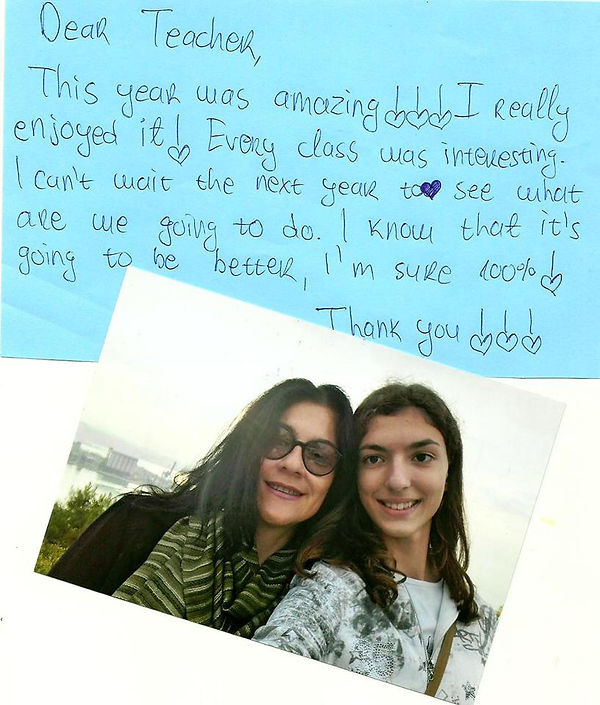 Dear Teacher,
This year was amazing!!! I really
enjoyed it! Every class was interesting.
I can't wait the next year to see what
are we going to do. I know that it's
going to be better, I'm sure 100%!
Thank you!!!